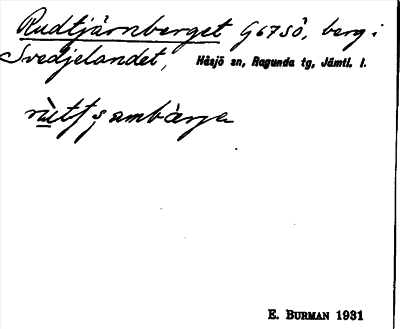 Rudtjärnberget G67SÖ, berg i
Svedjelandet, Håsjö sn, Ragunda tg, Jämtl. l.
E. BURMAN 1931